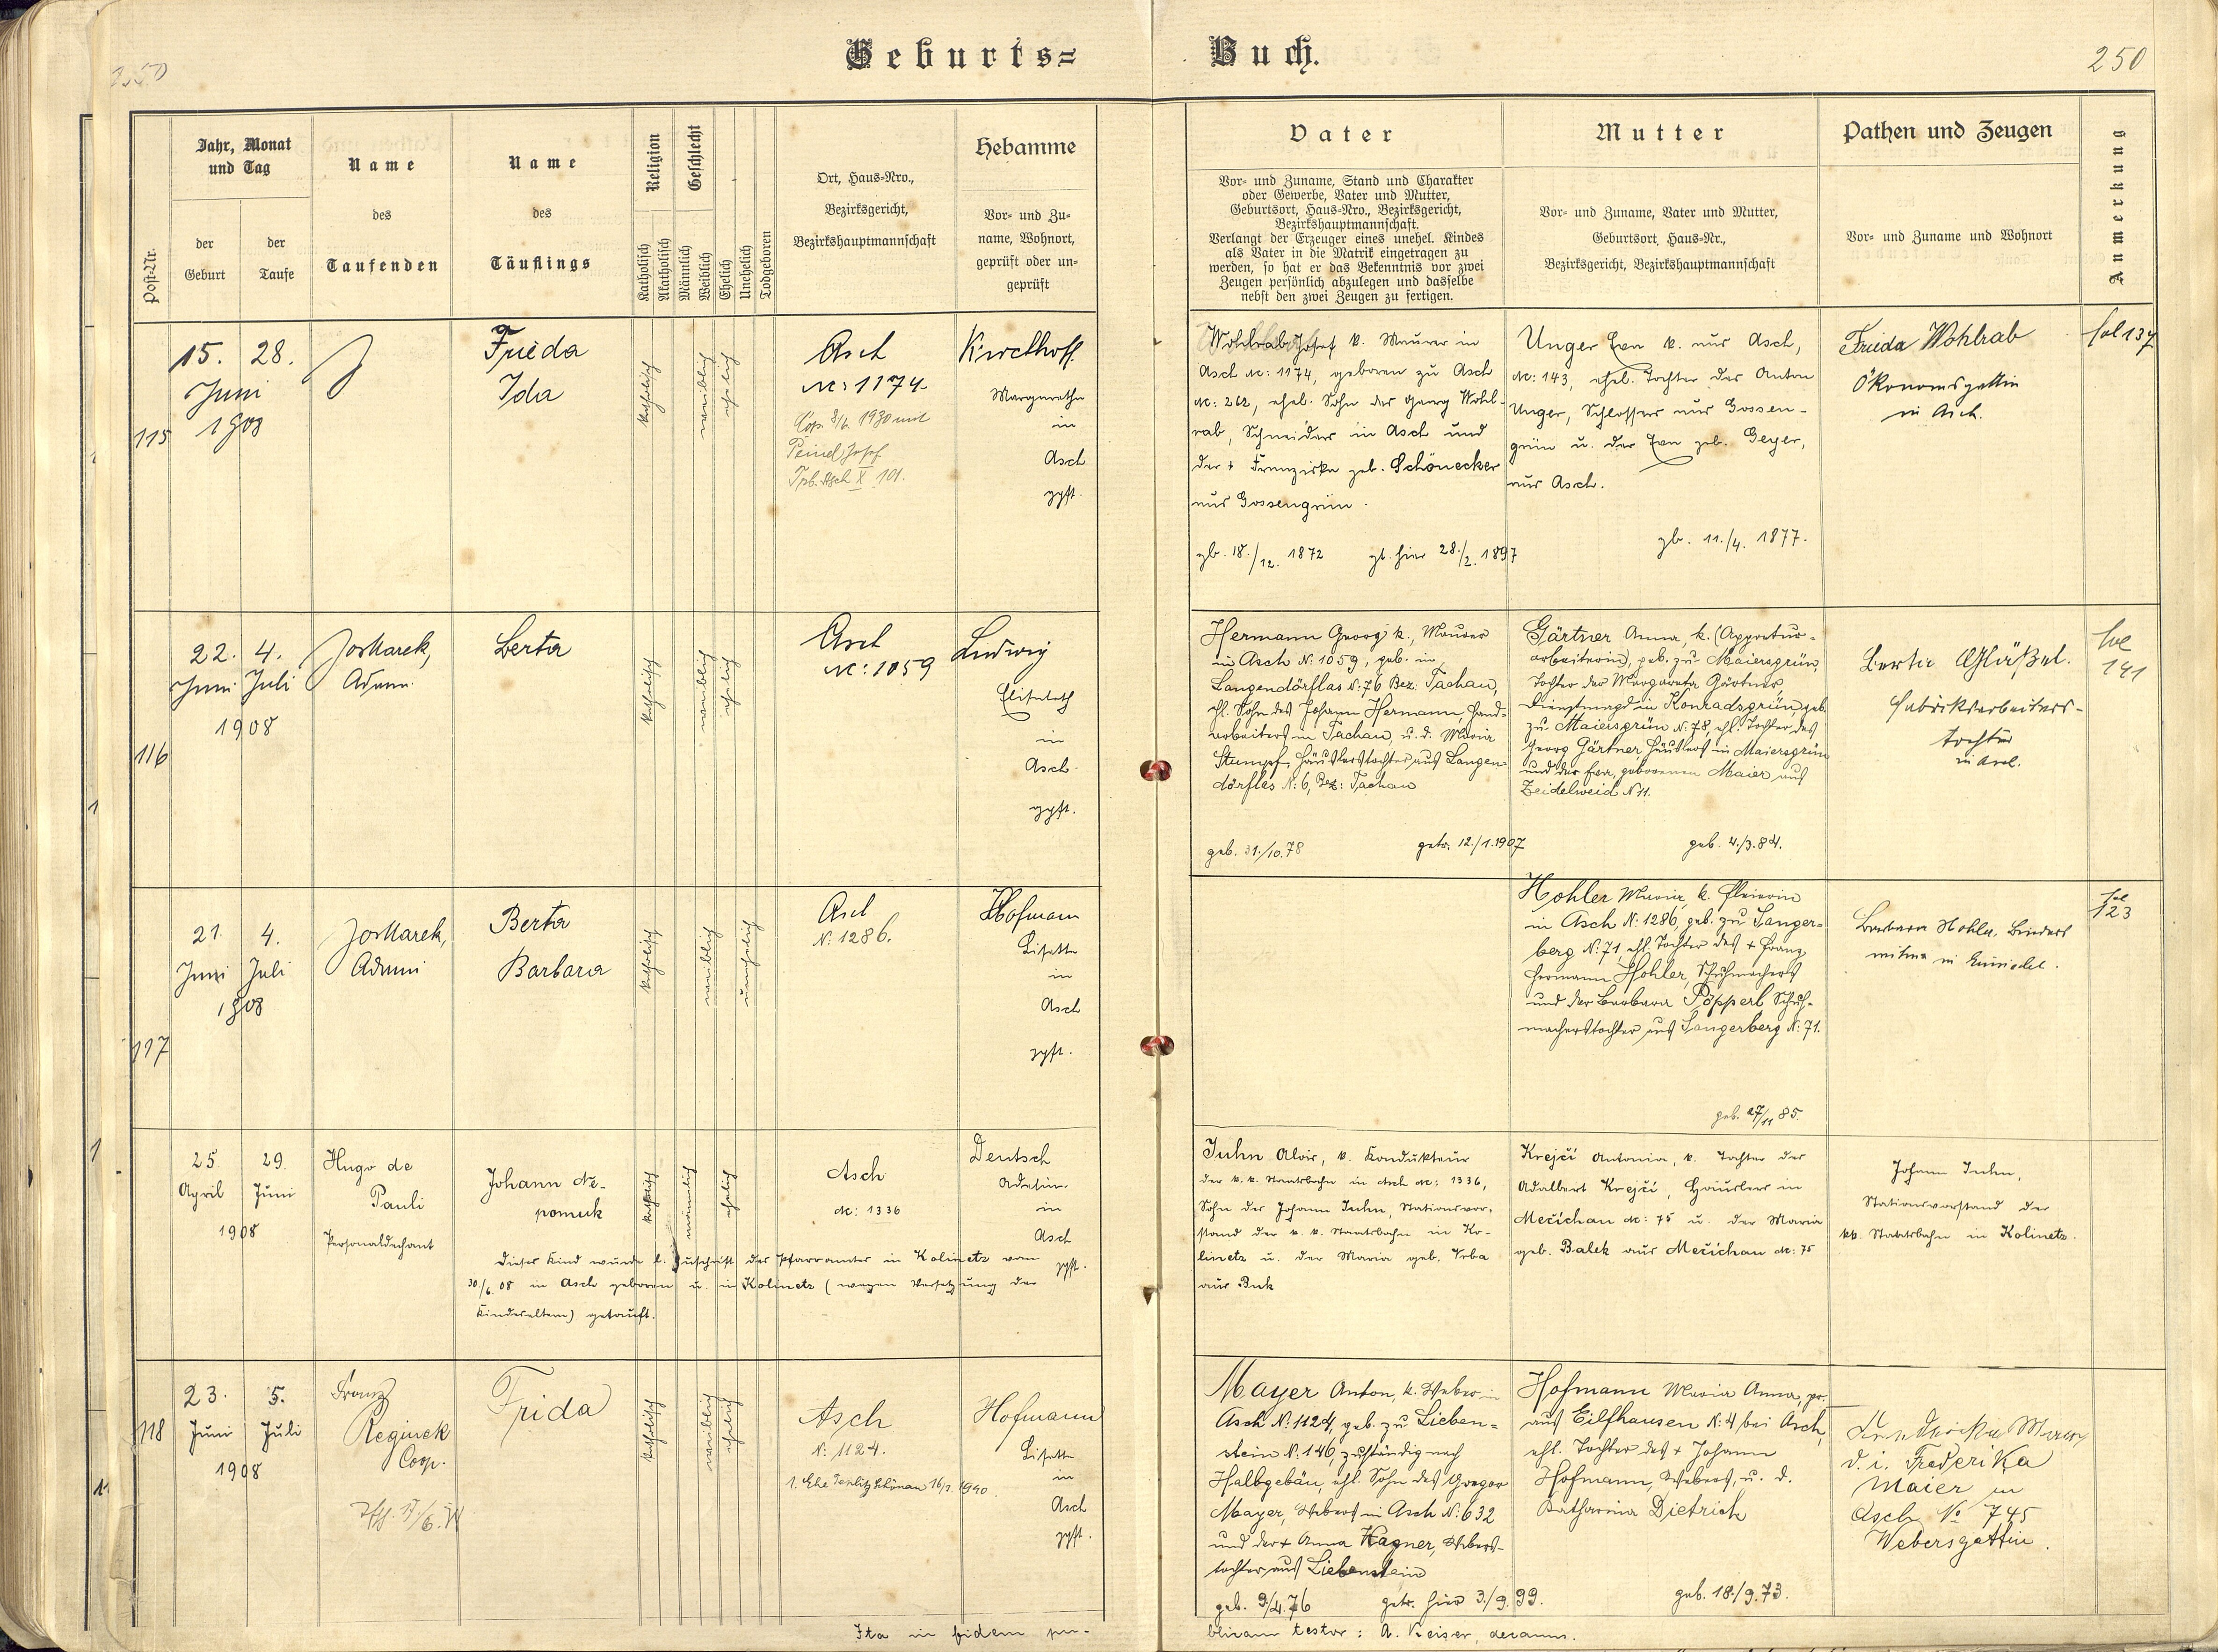 Geburts=
Buch.
250
250
Post-Nr.
Jahr, Monat
und Tag
der
Geburt
der
Taufe
Name
des
Taufenden
Name
des
Täuflings
Religion
Katholisch
Akatholisch
Geschlecht
Männlich
Weiblich
Ehelich
Unehelich
Todgeboren
Ort, Haus-Nro.,
Bezirksgericht,
Bezirkshauptmannschaft
Hebamme
Vor- und Zu-
name, Wohnort,
geprüft oder un-
geprüft
Vater
Vor- und Zuname, Stand und Charakter
oder Gewerbe, Vater und Mutter,
Geburtsort, Haus-Nro., Bezirksgericht,
Bezirkshauptmannschaft.
Verlangt der Erzeuger eines unehel. Kindes
als Vater in die Matrik eingetragen zu
werden, so hat er das Bekenntnis vor zwei
Zeugen persönlich abzulegen und dasselbe
nebst den zwei Zeugen zu fertigen.
Mutter
Vor- und Zuname, Vater und Mutter,
Geburtsort, Haus-Nr.,
Bezirksgericht, Bezirkshauptmannschaft
Pathen und Zeugen
Vor- und Zuname und Wohnort
Anmerkung
115
15.
28.
Juni
1908
Frieda
Ida
katholisch
weiblich
ehelich
Asch
N: 1174
1930 mit
Josef
Trb. Asch X 101.
Kirchhoff
Margarethe
in
Asch
gpft.
Wohlrab Josef k. Maurer in
Asch N: 1174, geboren zu Asch
N: 262, ehel. Sohn des Georg Wohl-
rab, Schneiders in Asch und
der + Franziska geb. Schönecker
aus Gossengrün.
gb. 18./12. 1872
gt. hier 28./2. 1897
Unger Eva k. aus Asch,
N: 143, ehel. Tochter des Anton
Unger, Schlossers aus Gossen-
grün u. der Eva geb. Geyer,
aus Asch.
gb. 11./4. 1877.
Frieda Wohlrab
Ökonomsgattin
in Asch.
fol 137
116
22.
4.
Juni
Juli
1908
Jos Marek,
Adam.
Berta
katholisch
weiblich
ehelich
Asch
N: 1059
Ludwig
Elisabeth
in
Asch
gpft.
Hermann Georg k., Maurer
in Asch N: 1059, geb. in
Langendörflas N: 76 Bez. Tachau,
ehl. Sohn des Johann Hermann, Hand-
arbeiters in Tachau, u. d. Maria
Stumpf, Häuslerstochter aus Langen-
dörflas N: 6, Bez: Tachau
geb. 31./10.78
getr. 12./1.1907
Gärtner Anna, k. (Appretur-
arbeiterin), geb. zu Maiersgrün,
Tochter der Margareta Gärtner,
Dienstmagd in Konradsgrün, geb.
zu Maiersgrün N: 78, ehl. Tochter des
Georg Gärtner, Häuslers in Maiersgrün
und der Eva, geborenen Maier aus
Zeidelweid N 11.
geb. 4./3.84.
Berta Gläßel.
Fabriksarbeiters-
tochter
in Asch.
fol
141
117
21.
4.
Juni
Juli
1908
Jos Marek,
Berta
Barbara
katholisch
weiblich
unehelich
Asch
N: 1286.
Hofmann
Lisette
in
Asch
gpft.
Hohler Maria, k.
in Asch N: 1286, geb. zu Sanger-
berg N: 71, ehl. Tochter des + Franz
Hermann Hohler, Schuhmachers
und der Barbara Pöpperl Schuh-
macherstochter aus Sangerberg N: 71.
geb. 27/11 85.
Barbara Hohler, Binders
witwe in Einsiedel.
fol
123
25
29.
April
Juni
1908
Hugo de
Pauli
Personaldechant
Johann Ne-
pomuk
katholisch
männlich
ehelich
Asch
N: 1336
Deutsch
in
Asch
gpft.
Dieses Kind wurde l. Zuschrift des Pfarramtes in Kolinetz vom
30/6. 08 in Asch geboren u. in Kolinetz (wegen Versetzung der
Kindeseltern) getauft.
Juhn Alois, k. Kondukteur
der k. k. Staatsbahn in Asch N: 1336,
Sohn des Johann Juhn, Stationsvor-
stand der k. k. Staatsbahn in Ko-
linetz u. der Maria geb. Vrba
aus Buk
Krejčí Antonia, k. Tochter des
Adalbert Krejčí, Häuslers in
Mečichau N: 75 u. der Maria
geb. Balek aus Mečichau N: 75
Johann Juhn,
Stationsvorstand der
kk. Staatsbahn in Kolinetz.
118
23.
5.
Juni
Juli
1908
Franz
Reginek
Coop.
Frida
katholisch
weiblich
ehelich
Asch
N: 1124.
1. Ehe Teplitz Schönau 16/1. 1940.
Hofmann
Lisette
in
Asch
gpft.
Mayer Anton, k. Weber in
Asch N: 1124, geb. zu Lieben-
stein N: 146, zuständig nach
Halbgebäu, ehl. Sohn des Gregor
Mayer, Webers in Asch N: 632
und der + Anna Wagner, Webers-
tochter aus Liebenstein
geb. 9/4.76
getr. hier 3./9. 99.
Hofmann Maria Anna, pr.
aus Eilfhausen N: 4 bei Asch,
ehl. Tochter des + Johann
Hofmann, Webers, u. d.
Katharina Dietrich
geb. 18./9.73.
d. i. Frederika
Maier in
Asch No 745
Webersgattin.
Ita in fidem pu-
blicam testor: A. Keiser, decanus.